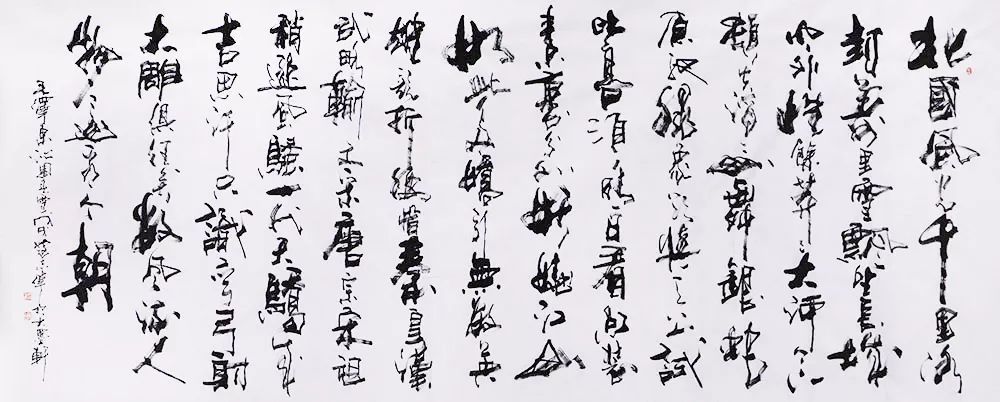 北國風光千里冰
封萬里雪飄望長城
內外惟餘莽莽大河上下
頓失滔滔山舞銀蛇
原馳蠟象欲與天公試
比高須晴日看紅裝
素裹分外妖嬈江山
如此多嬌引無數英
雄競折腰惜秦皇漢
武略輸文采唐宗宋祖
稍遜風騷一代天驕成
吉思汗只識彎弓射
大雕俱往矣數風流人
物還看今朝
毛澤東沁園春雪